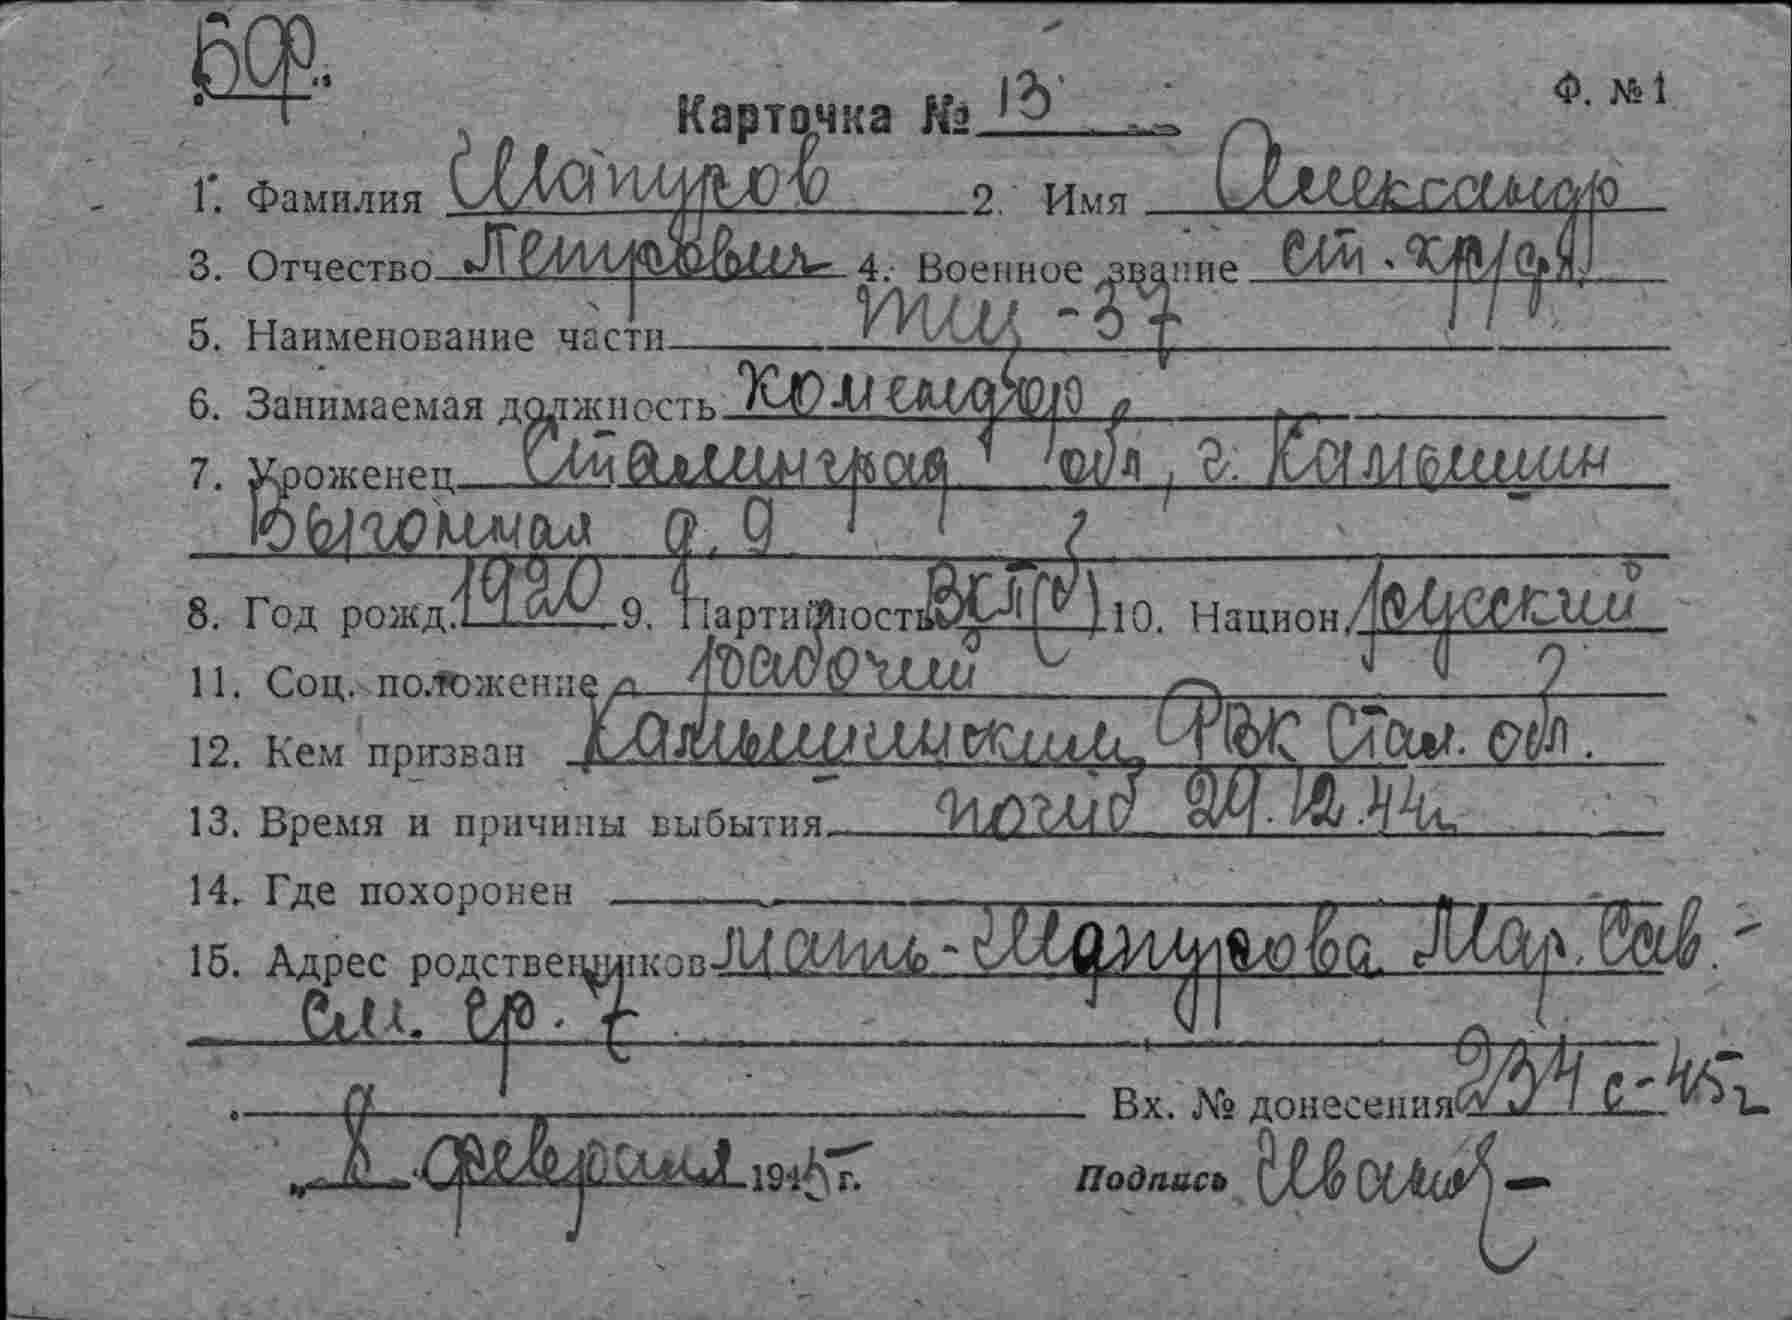 Карточка № 13 Ф. № 1
1. Фамилия Шатилов 2. Имя Александр
3. Отчество Петрович 4. Военное звание
5. Наименование части тщ-37
6. Занимаемая должность комендор
7. Уроженец Сталинград обл, г. Камышин
Выгонная д. 9
8. Год рожд. 1920 9. Партийность ВКП(б) 10. Национ. русский
11. Соц. положение рабочий
12. Кем призван Камышинским РВК Стал. обл.
13. Время и причины выбытия погиб 29.12.44г.
14. Где похоронен
15. Адрес родственников мать - Мар. Сав. -
см. гр. 7
Вх. № донесения 234 с-45г
"8" февраля 1945 г. Подпись